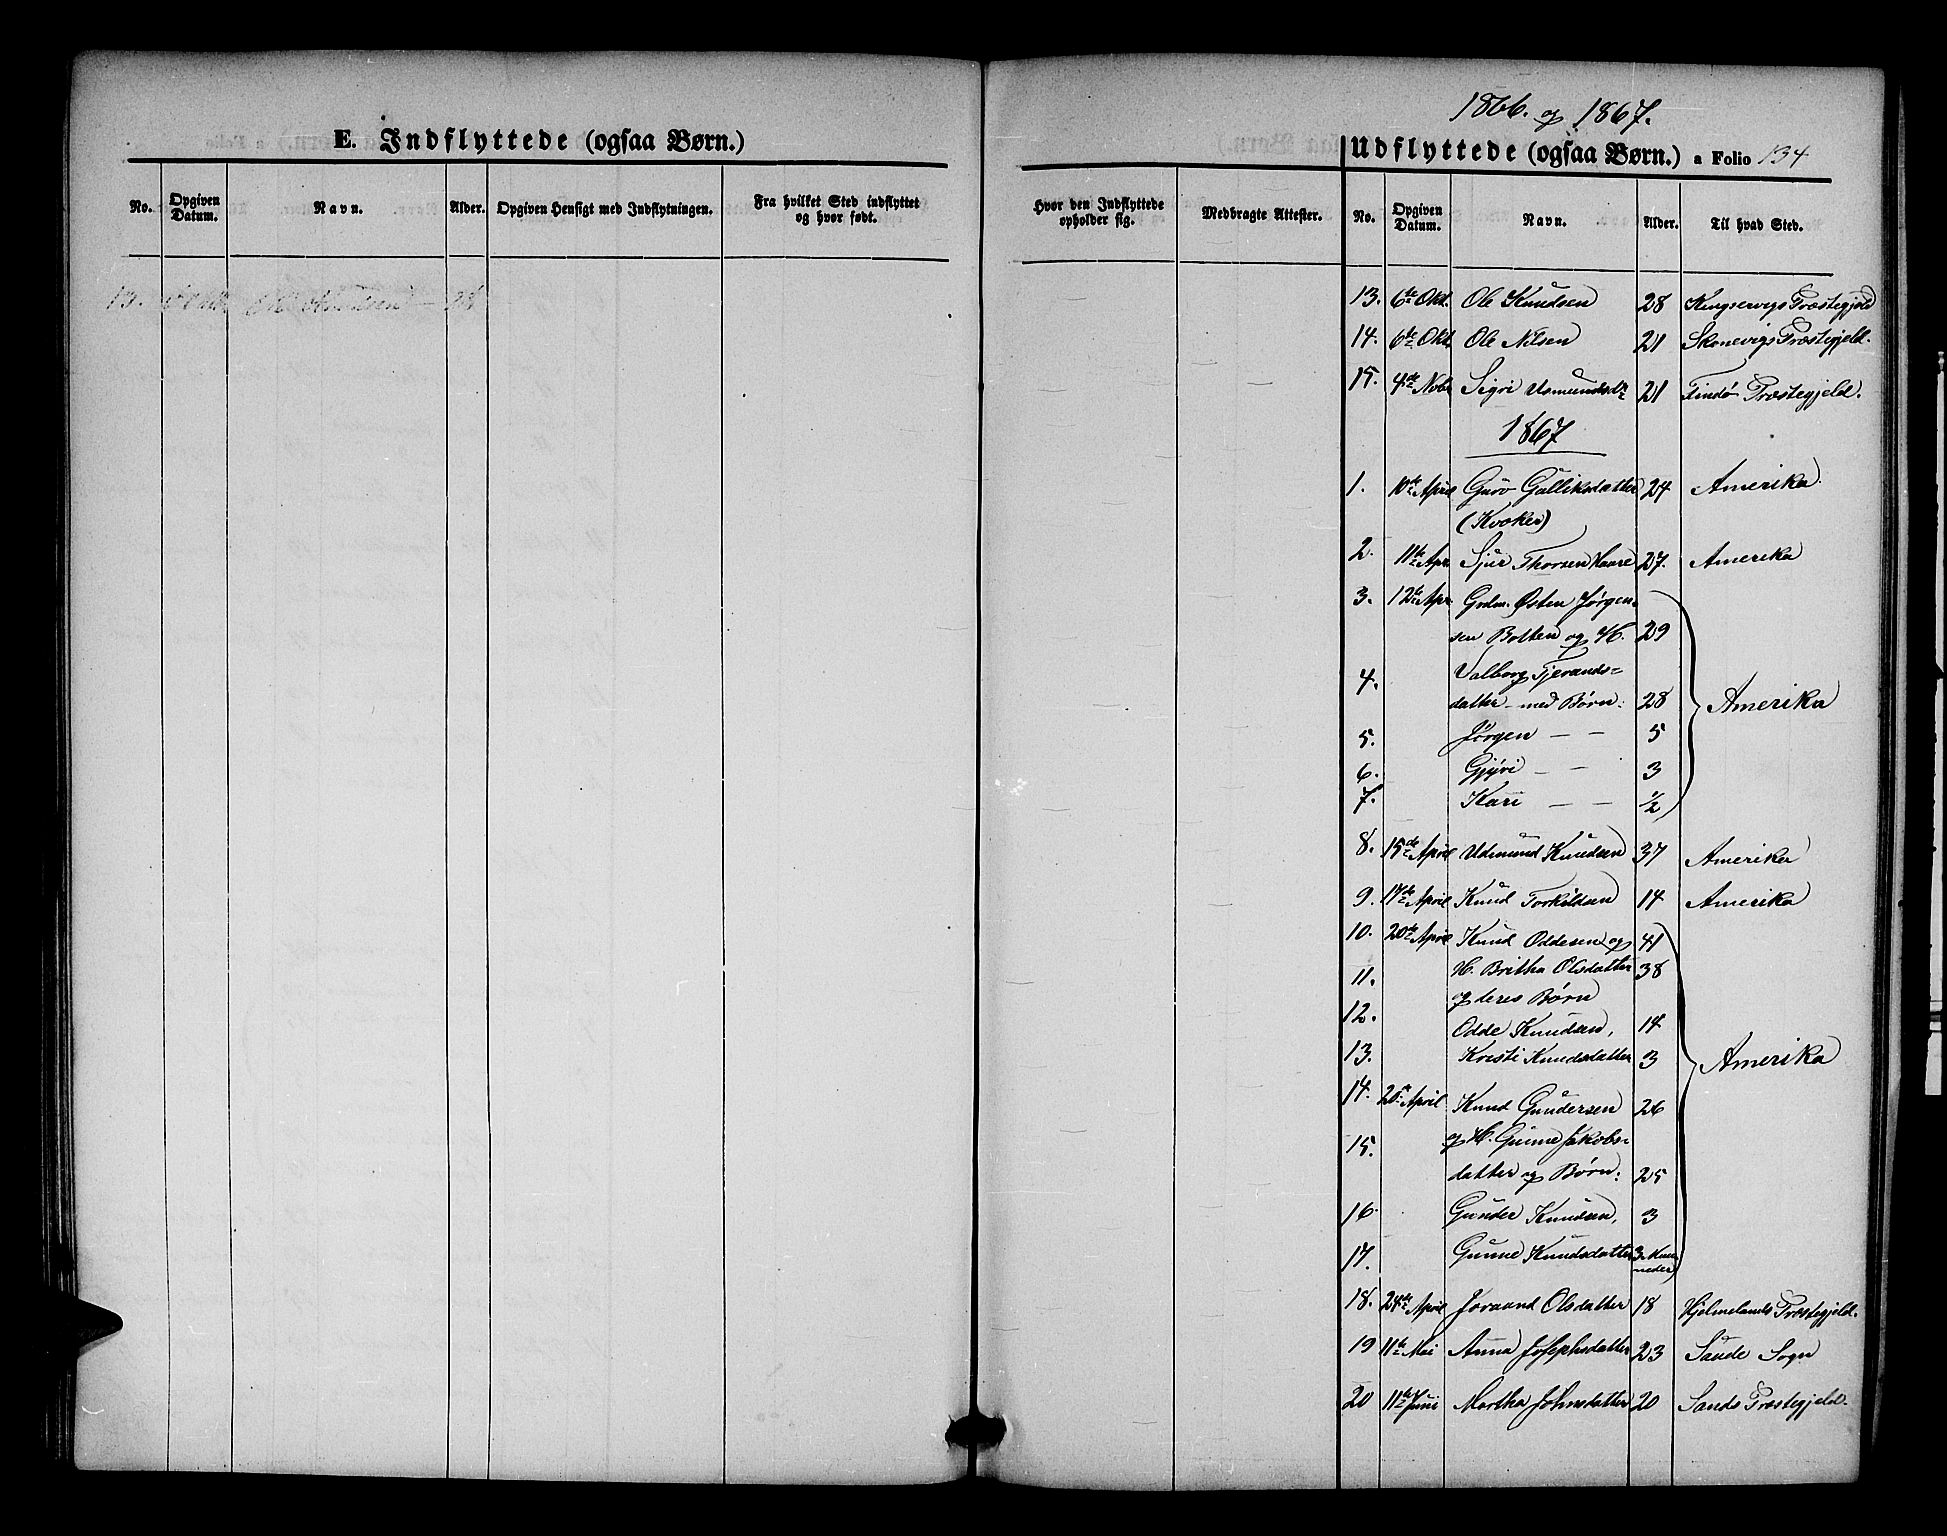 E. Indflyttede (ogsaa Børn.)
No. Opgiven Datum. Navn. Alder. Opgiven Hensigt med Indflytningen. Fra hvilket Sted indflyttet og hvor født.
13.
1866. og 1867.
Udflyttede (ogsaa Børn.) a Folio 134
Hvor den Indflyttede opholder sig. Medbragte Attester. No. Opgiven Datum. Navn. Alder. Til hvad Sted.
13. 6te Okt. Ole Knudsen 28 Kingservigs Præstegjeld
14. 6te Okt. Ole Nilsen 21 Skonevigs Præstegjeld.
15. 4de Nobr Sigri Asmundsdr 21 Findø Præstegjeld.
1867
1. 10de April Guro Gulliksdatter 24 Amerika.
(Kvæker)
2. 11te Apr. Sjur Thorsen Haare 27. Amerika
3. 12te Apr. Grdm. Østen Jørgen-
sen Botten og H. 29
4. Valborg Tjerands-
datter med Børn: 28 Amerika
5. Jørgen — — 5
6. Gjøri — — 3
7. Kari — — 1/2
8. 15de April Admund Knudsen 37 Amerika
9. 17de April Knud Torkildsen 14 Amerika
10. 20de April Knud Oddesen og 41
11. H. Britha Olsdatter 38
og deres Børn
12. Odde Knudsen, 14
13. Kristi Knudsdatter 3 Amerika
14. 20de April Knud Gundersen 26
15. og H. Gunne Jakobs-
datter og Børn: 25
16. Gunder Knudsen, 3
17. Gunne Knudsdatter 3
18. 24de April Joraand Olsdatter 18 Hjelmelands Præstegjeld.
19 11te Mai Anna Josephsdatter 23 Saude Sogn
20 11te Juni Martha Johnsdatter 20 Sands Præstegjeld.